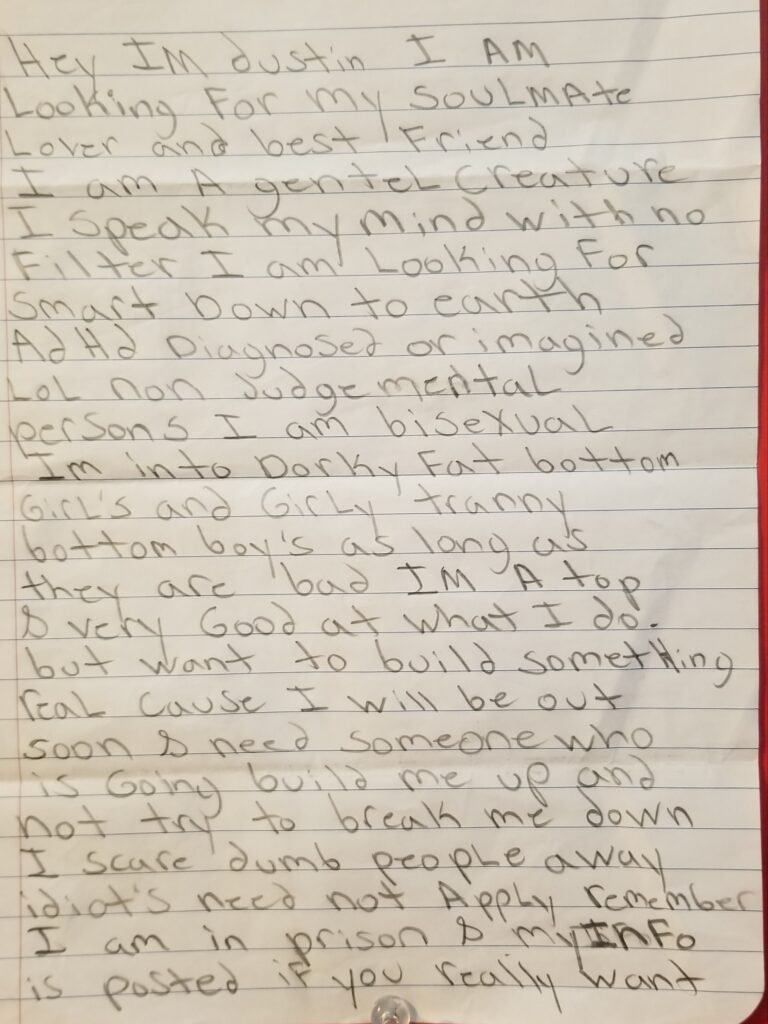 Hey IM dustin I AM
Looking For my SOULMAte
Lover and best Friend
I am A gentel creature
I speak my mind with no
Filter I am Looking For
smart Down to earth
AdHd Diagnosed or imagined
LoL non Judgemental
persons I am bisexual
Im into Dorky Fat bottom
Girl's and Girly tranny
bottom boy's as long as
they are bad IM A top
& very Good at what I do.
but want to build something
real cause I will be out
soon & need someone who
is Going build me up and
not try to break me down
I scare dumb people away
idiot's need not Apply remember
I am in prison & my InFo
is posted if you really want